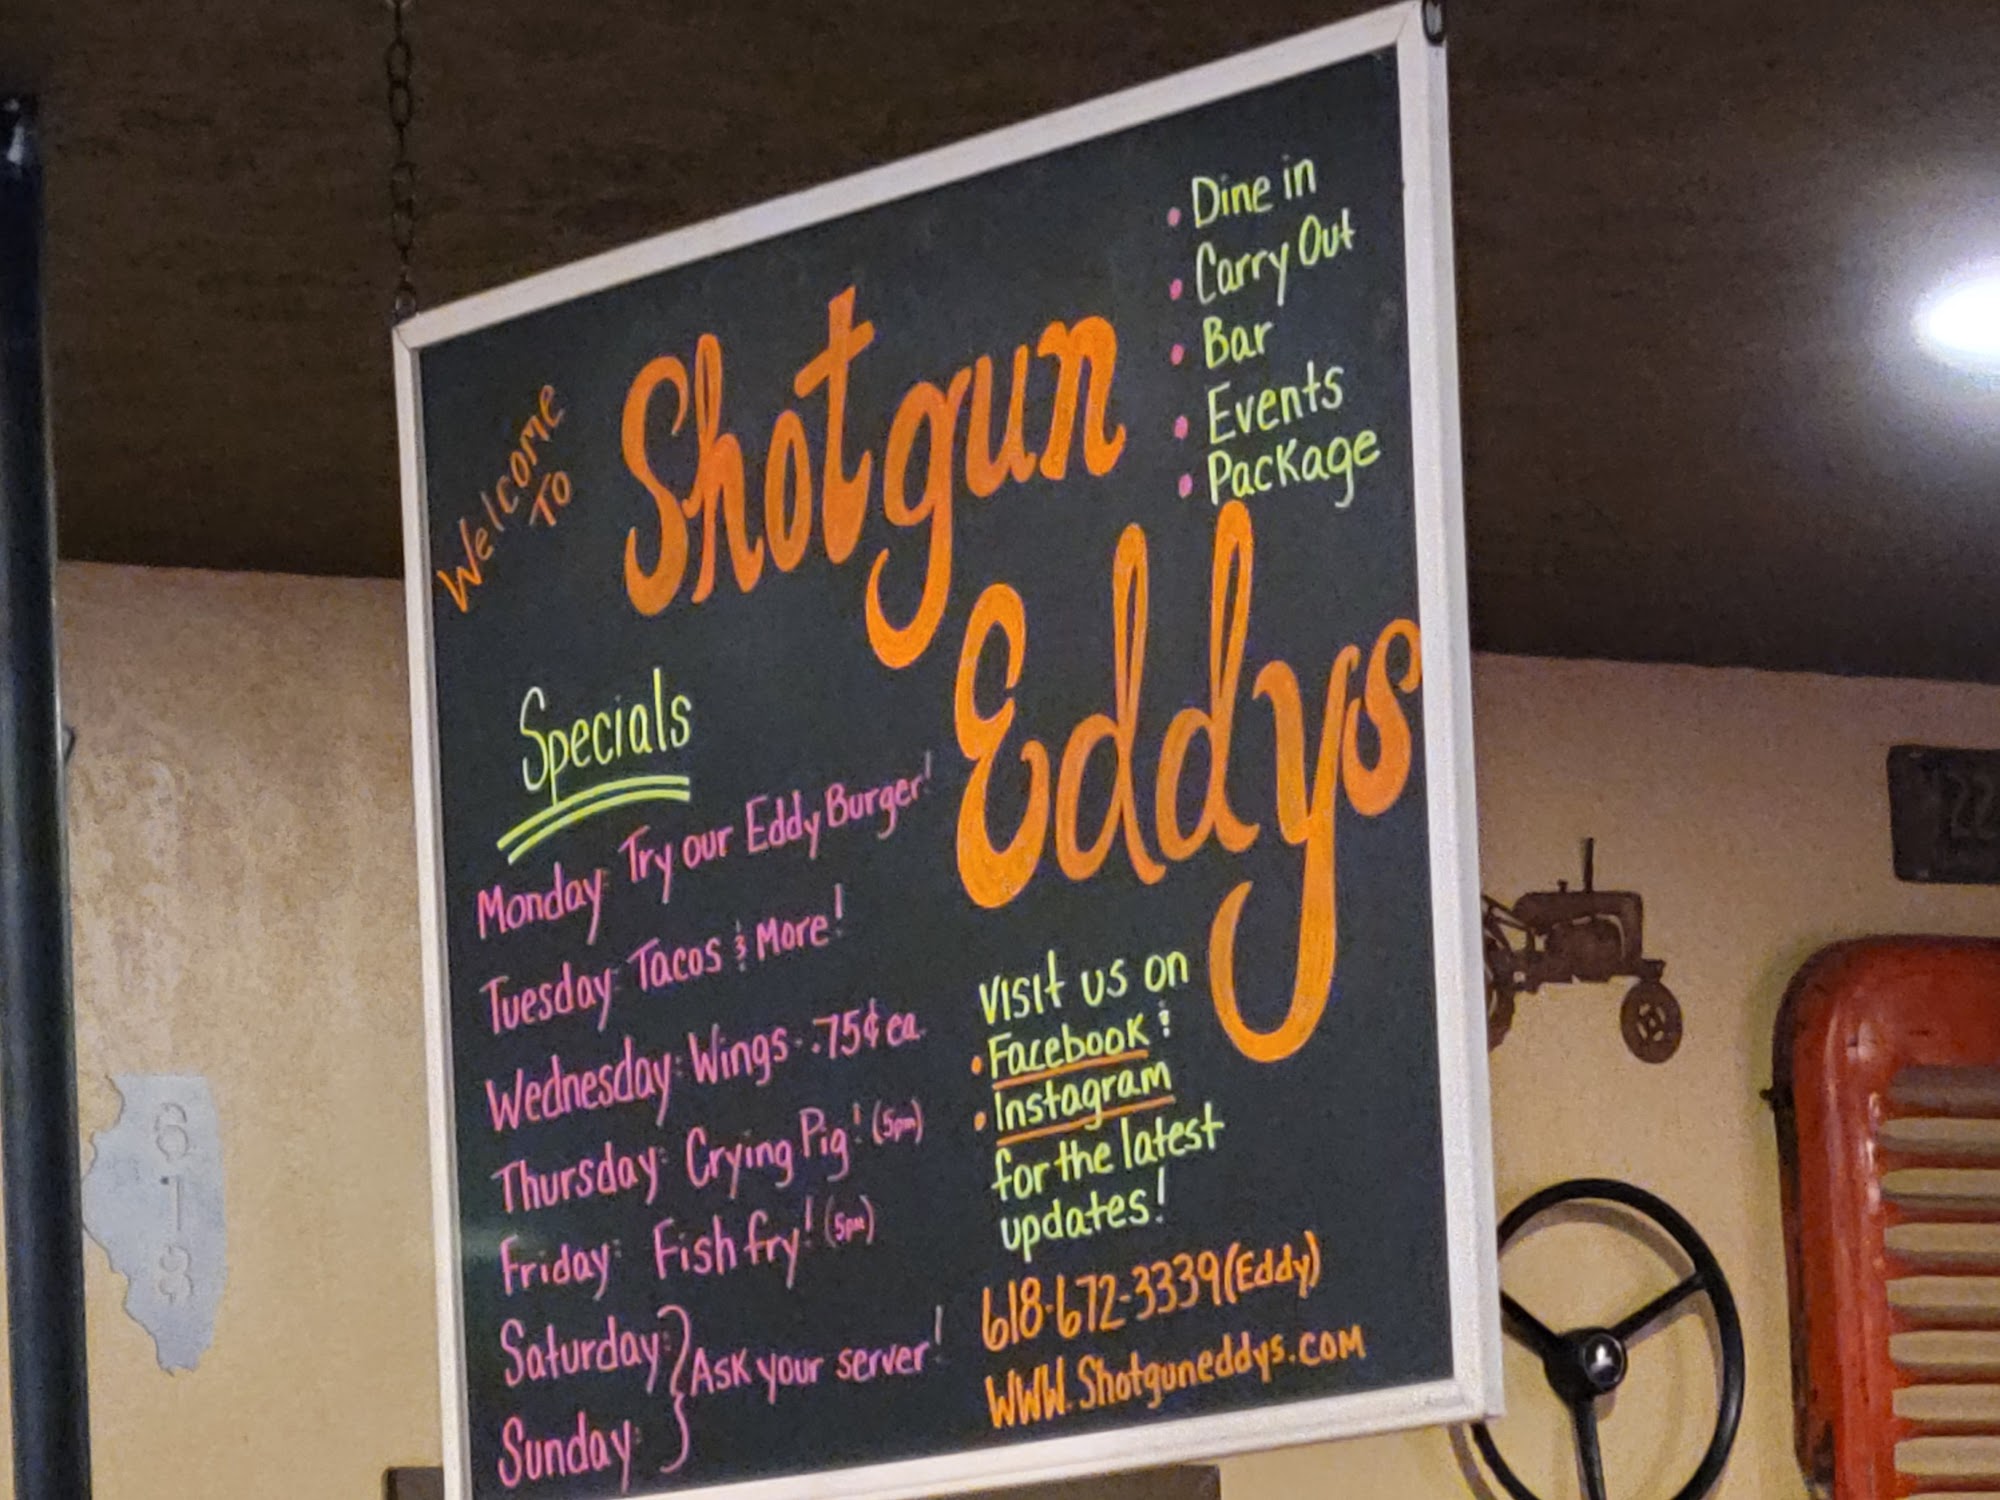 Welcome
To
Shotgun
Eddys
• Dine in
• Carry Out
• Bar
• Events
• Package
Specials
Monday: Try our Eddy Burger!
Tuesday: Tacos & More!
Wednesday: Wings - .75¢ ea.
Thursday: Crying Pig! (5pm)
Friday: Fish fry! (5pm)
Saturday: } Ask your server!
Sunday:
Visit us on
• Facebook &
• Instagram
for the latest
updates!
618-672-3339 (Eddy)
WWW.Shotguneddys.com
618
22